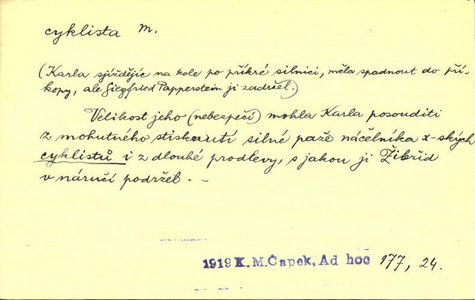 cyklista m.
(Karla sjíždějíc na kole po příkré silnici, měla spadnout do pří-
kopy, ale Siegfried Papperstein ji zadržel.)
Velikost jeho (nebezpečí) mohla Karla posouditi
z mohutného stisknutí silné paže náčelníka x-ských
cyklistů i z dlouhé prodlevy, s jakou ji Žibřid
v náručí podržel. —
1919 K. M. Čapek, Ad hoc 177, 24.